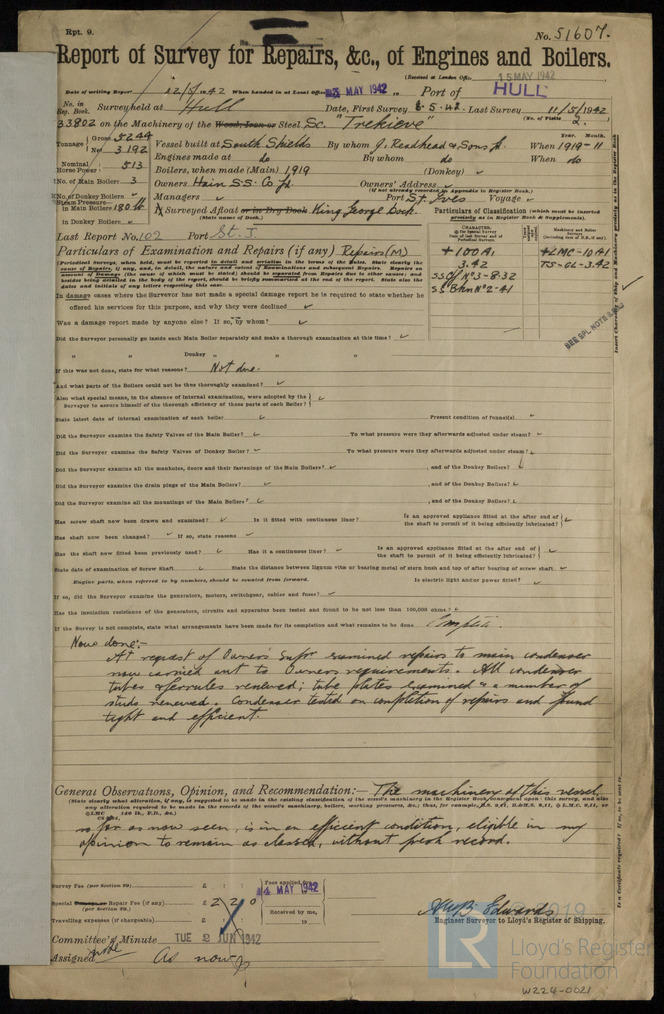 Rpt. 9.
No. 51607.
Report of Survey for Repairs, &c., of Engines and Boilers.
(Received at London Office 15 MAY 1942
Date of writing Report 12/5/1942 When handed in at Local Office MAY 1942 Port of HULL
No. in Reg. Book. Survey held at Hull Date, First Survey 6-5-42 Last Survey 11/5/1942
(No. of Visits 2.)
33802 on the Machinery of the Wood, Iron or Steel Sc. "Trekieve"
Tonnage Gross 5244 Net 3192 Vessel built at South Shields By whom J. Readhead & Sons Ld. When 1919-11
Year. Month.
Engines made at do By whom do When do
Nominal Horse Power 513 Boilers, when made (Main) 1919 (Donkey) ✓
No. of Main Boilers 3 Owners Hain S.S. Co Ld. Owners' Address ✓
(if not already recorded in Appendix to Register Book.)
No. of Donkey Boilers ✓ Managers ✓ Port St. Ives Voyage ✓
Steam Pressure in Main Boilers 180 lb Surveyed Afloat or in Dry Dock King George Dock.
(State name of Dock.)
in Donkey Boilers ✓
Particulars of Classification (which must be inserted precisely as in Register Book & Supplements).
Last Report No. 102 Port St. J.
Particulars of Examination and Repairs (if any) Repairs (M)
+100A1 +LMC-10,41
3.42 TS-CL-3.42
SS Cf No 3-8.32
SS Bhn No 2-41
SEE SPL NOTE
In damage cases where the Surveyor has not made a special damage report he is required to state whether he
offered his services for this purpose, and why they were declined ✓
Was a damage report made by anyone else? If so, by whom? ✓
Did the Surveyor personally go inside each Main Boiler separately and make a thorough examination at this time? ✓
" " Donkey " " "
If this was not done, state for what reasons? Not due.
And what parts of the Boilers could not be thus thoroughly examined? ✓
Also what special means, in the absence of internal examination, were adopted by the
Surveyor to assure himself of the thorough efficiency of those parts of each Boiler? ✓
State latest date of internal examination of each boiler ✓ Present condition of funnel(s) ✓
Did the Surveyor examine the Safety Valves of the Main Boiler? ✓ To what pressure were they afterwards adjusted under steam? ✓
Did the Surveyor examine the Safety Valves of Donkey Boiler? ✓ To what pressure were they afterwards adjusted under steam? ✓
Did the Surveyor examine all the manholes, doors and their fastenings of the Main Boilers? ✓, and of the Donkey Boilers? ✓
Did the Surveyor examine the drain plugs of the Main Boilers? ✓, and of the Donkey Boilers? ✓
Did the Surveyor examine all the mountings of the Main Boilers? ✓, and of the Donkey Boilers? ✓
Has screw shaft now been drawn and examined? ✓ Is it fitted with continuous liner? ✓ Is an approved appliance fitted at the after end of the shaft to permit of it being efficiently lubricated? ✓
Has shaft now been changed? ✓ If so, state reasons ✓
Has the shaft now fitted been previously used? ✓ Has it a continuous liner? ✓ Is an approved appliance fitted at the after end of the shaft to permit of it being efficiently lubricated? ✓
State date of examination of Screw Shaft ✓ State the distance between lignum vitæ or bearing metal of stern bush and top of after bearing of screw shaft ✓
Engine parts, when referred to by numbers, should be counted from forward. Is electric light and/or power fitted? ✓
If so, did the Surveyor examine the generators, motors, switchgear, cables and fuses? ✓
Has the insulation resistance of the generators, circuits and apparatus been tested and found to be not less than 100,000 ohms? ✓
If the Survey is not complete, state what arrangements have been made for its completion and what remains to be done Complete.
Now done:-
At request of Owner's Supr examined repairs to main condenser
now carried out to Owners requirements. All condenser
tubes & ferrules renewed; tube plates examined & a number of
studs renewed. Condenser tested on completion of repairs and found
tight and efficient.
General Observations, Opinion, and Recommendation:— The machinery of this vessel,
(State clearly what alteration, if any, is suggested to be made in the existing classification of the vessel's machinery in the Register Book consequent upon this survey, and also
so far as now seen, is in an efficient condition, eligible in my
opinion to remain as classed, without fresh record.
Survey Fee (per Section 29) £ : :
Special Damage or Repair Fee (if any) £ 2 2 0
(per Section 29.)
Travelling expenses (if chargeable) £ : :
Fees applied for 14 MAY 1942
Received by me,
19
A.W.B. Edwards
Engineer Surveyor to Lloyd's Register of Shipping.
Committee's Minute TUE 2 JUN 1942
Assigned As now
© 2019
LR
Lloyd's Register
Foundation
W224-0021